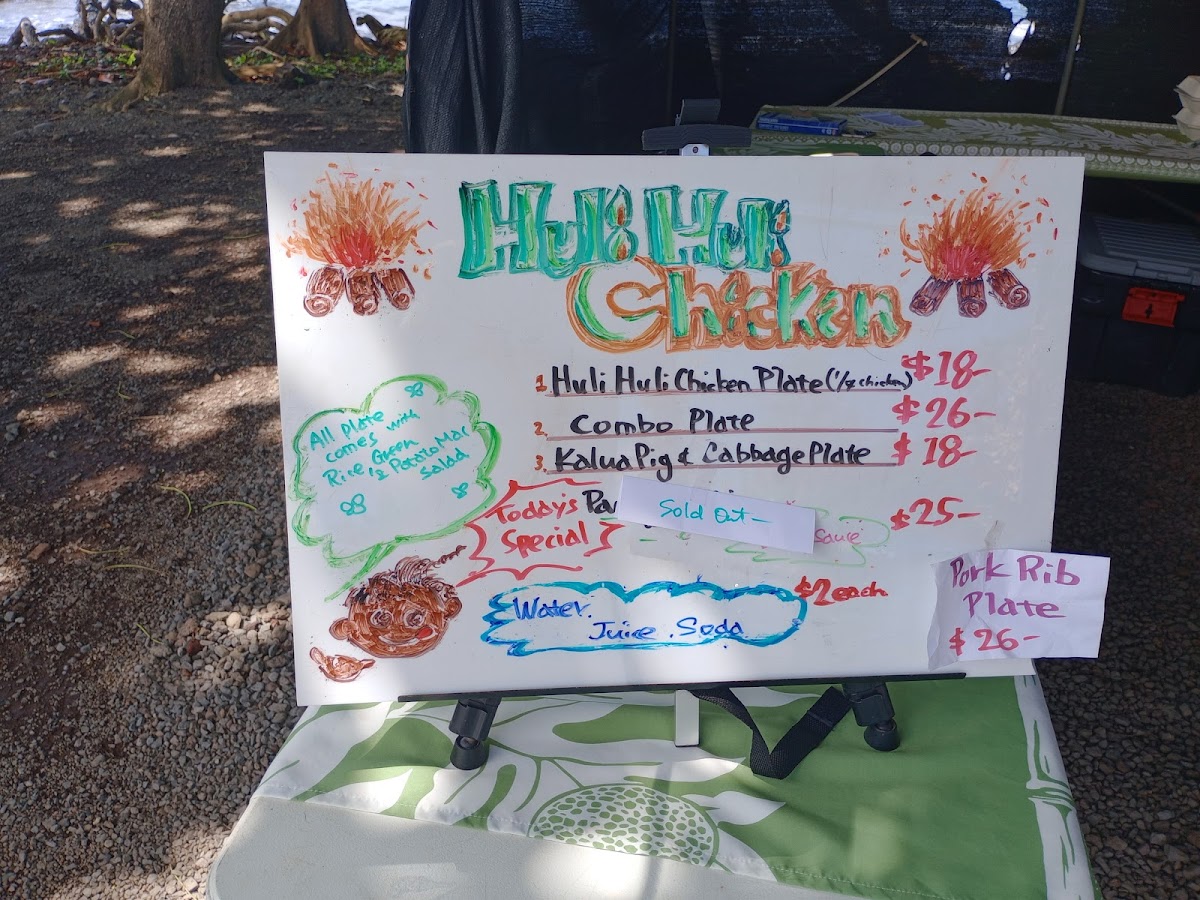 Huli Huli
Chicken
1. Huli Huli Chicken Plate (1/2 chicken) $18-
2. Combo Plate $26-
3. Kalua Pig & Cabbage Plate $18-
All Plate
comes with
Rice, Green
& Potato Mac
Salad
Today's
Special
Sold Out-
Sauce
$25-
Water.
Juice. Soda
$2 each
Pork Rib
Plate
$26-